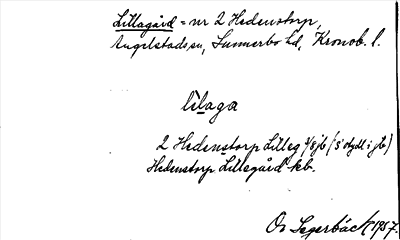 Lillagård = nr 2 Hedenstorp,
Angelstads sn, Sunnerbo hd, Kronob. l.
lìlaga
2 Hedenstorp Lilleg 1/8 jb (s otydl. i jb)
Hedenstorp Lillegård kb.
Os Segerbäck 1957.